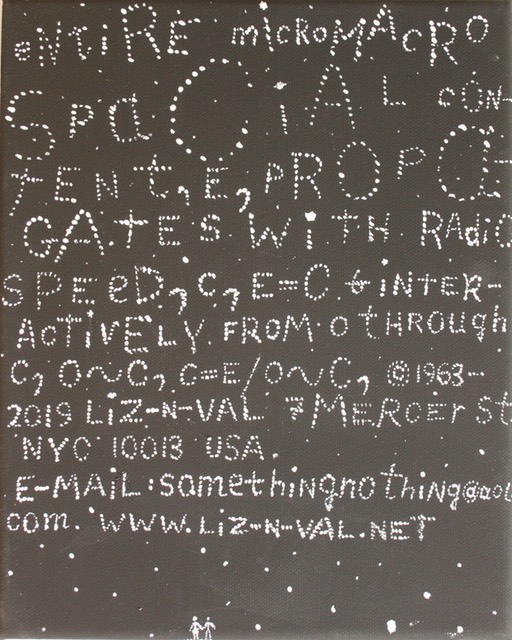 eNtiRE micROMACRO
SpaCiAL CON-
TENT, E, PROPa-
GATES WiTH RAdiO
SPEeD, C, E=C & iNTER-
ACTiVELY FROM O THROUgh
C, O~C, C=E/O~C, ©1963-
2019 LiZ-N-VAL 7 MERCEr St
NYC 10013 USA.
E-MAiL:somethingnothing@aol
com. WWW.LiZ-N-VAL.NET